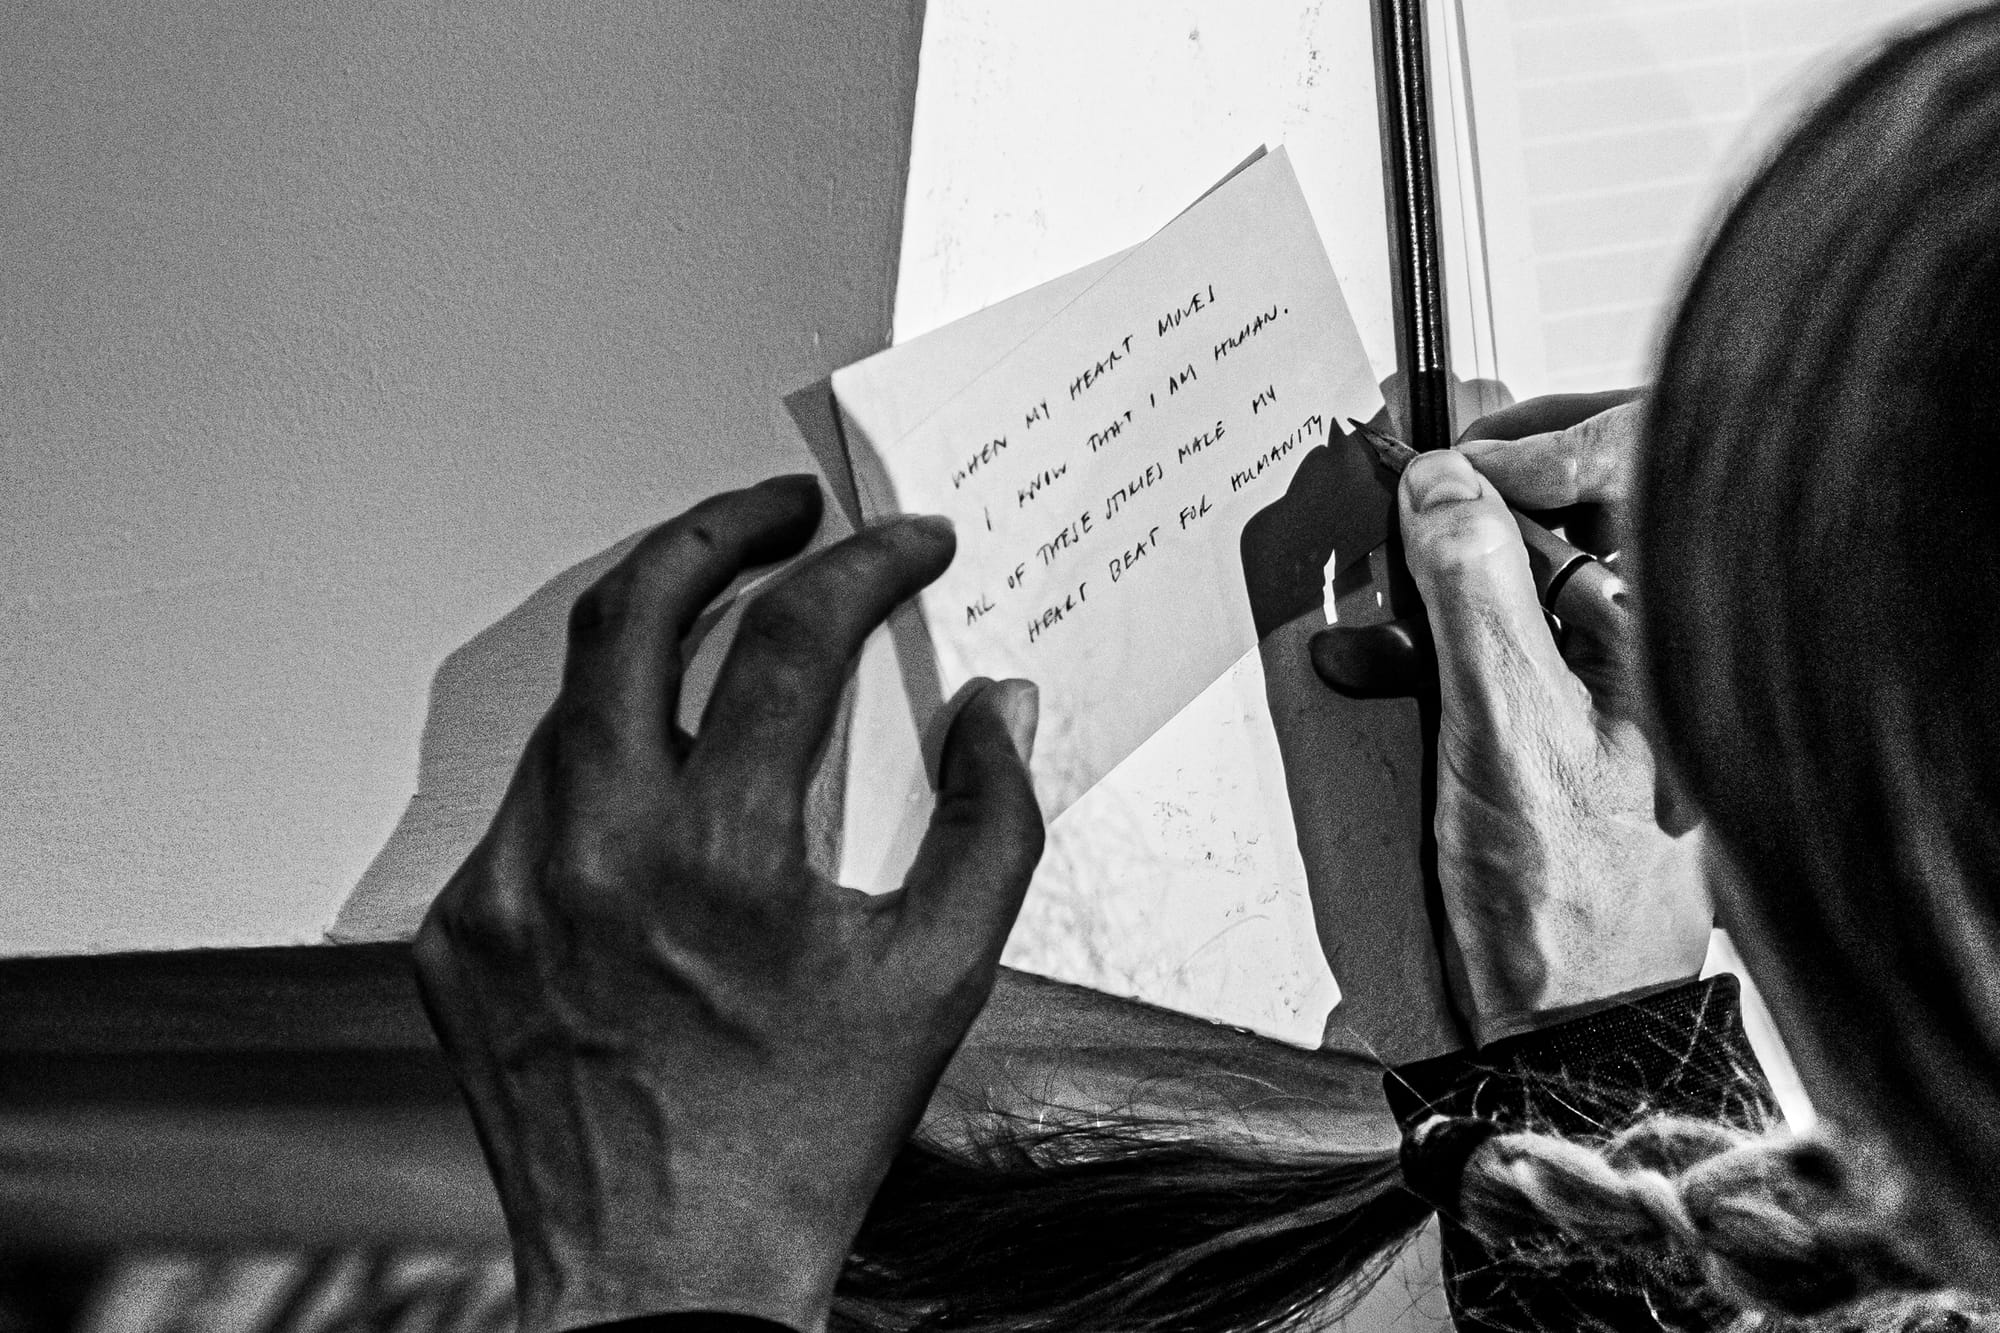 WHEN MY HEART MOVES
I KNOW THAT I AM HUMAN.
ALL OF THESE STORIES MAKE MY
HEART BEAT FOR HUMANITY